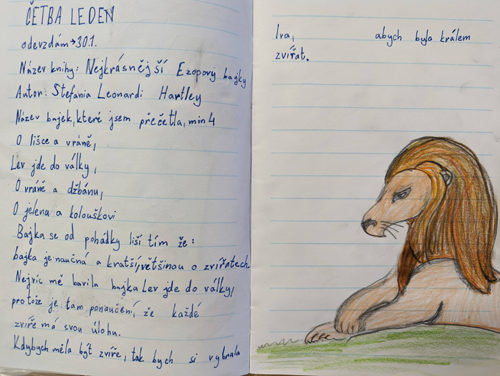 ČETBA LEDEN
odevzdám→30.1.
Název knihy: Nejkrásnější Ezopovy bajky
Autor: Stefania Leonardi Hartley
Název bajek, které jsem přečetla, min 4
O lišce a vráně,
Lev jde do války,
O vráně a džbánu,
O jelenu a kolouškovi
Bajka se od pohádky liší tím že:
bajka je naučná a kratší, většinou o zvířatech
Nejvíc mě bavila bajka Lev jde do války,
protože je tam ponaučení, že každé
zvíře má svou úlohu.
Kdybych měla být zvíře, tak bych si vybrala
lva, abych byla králem
zvířat.